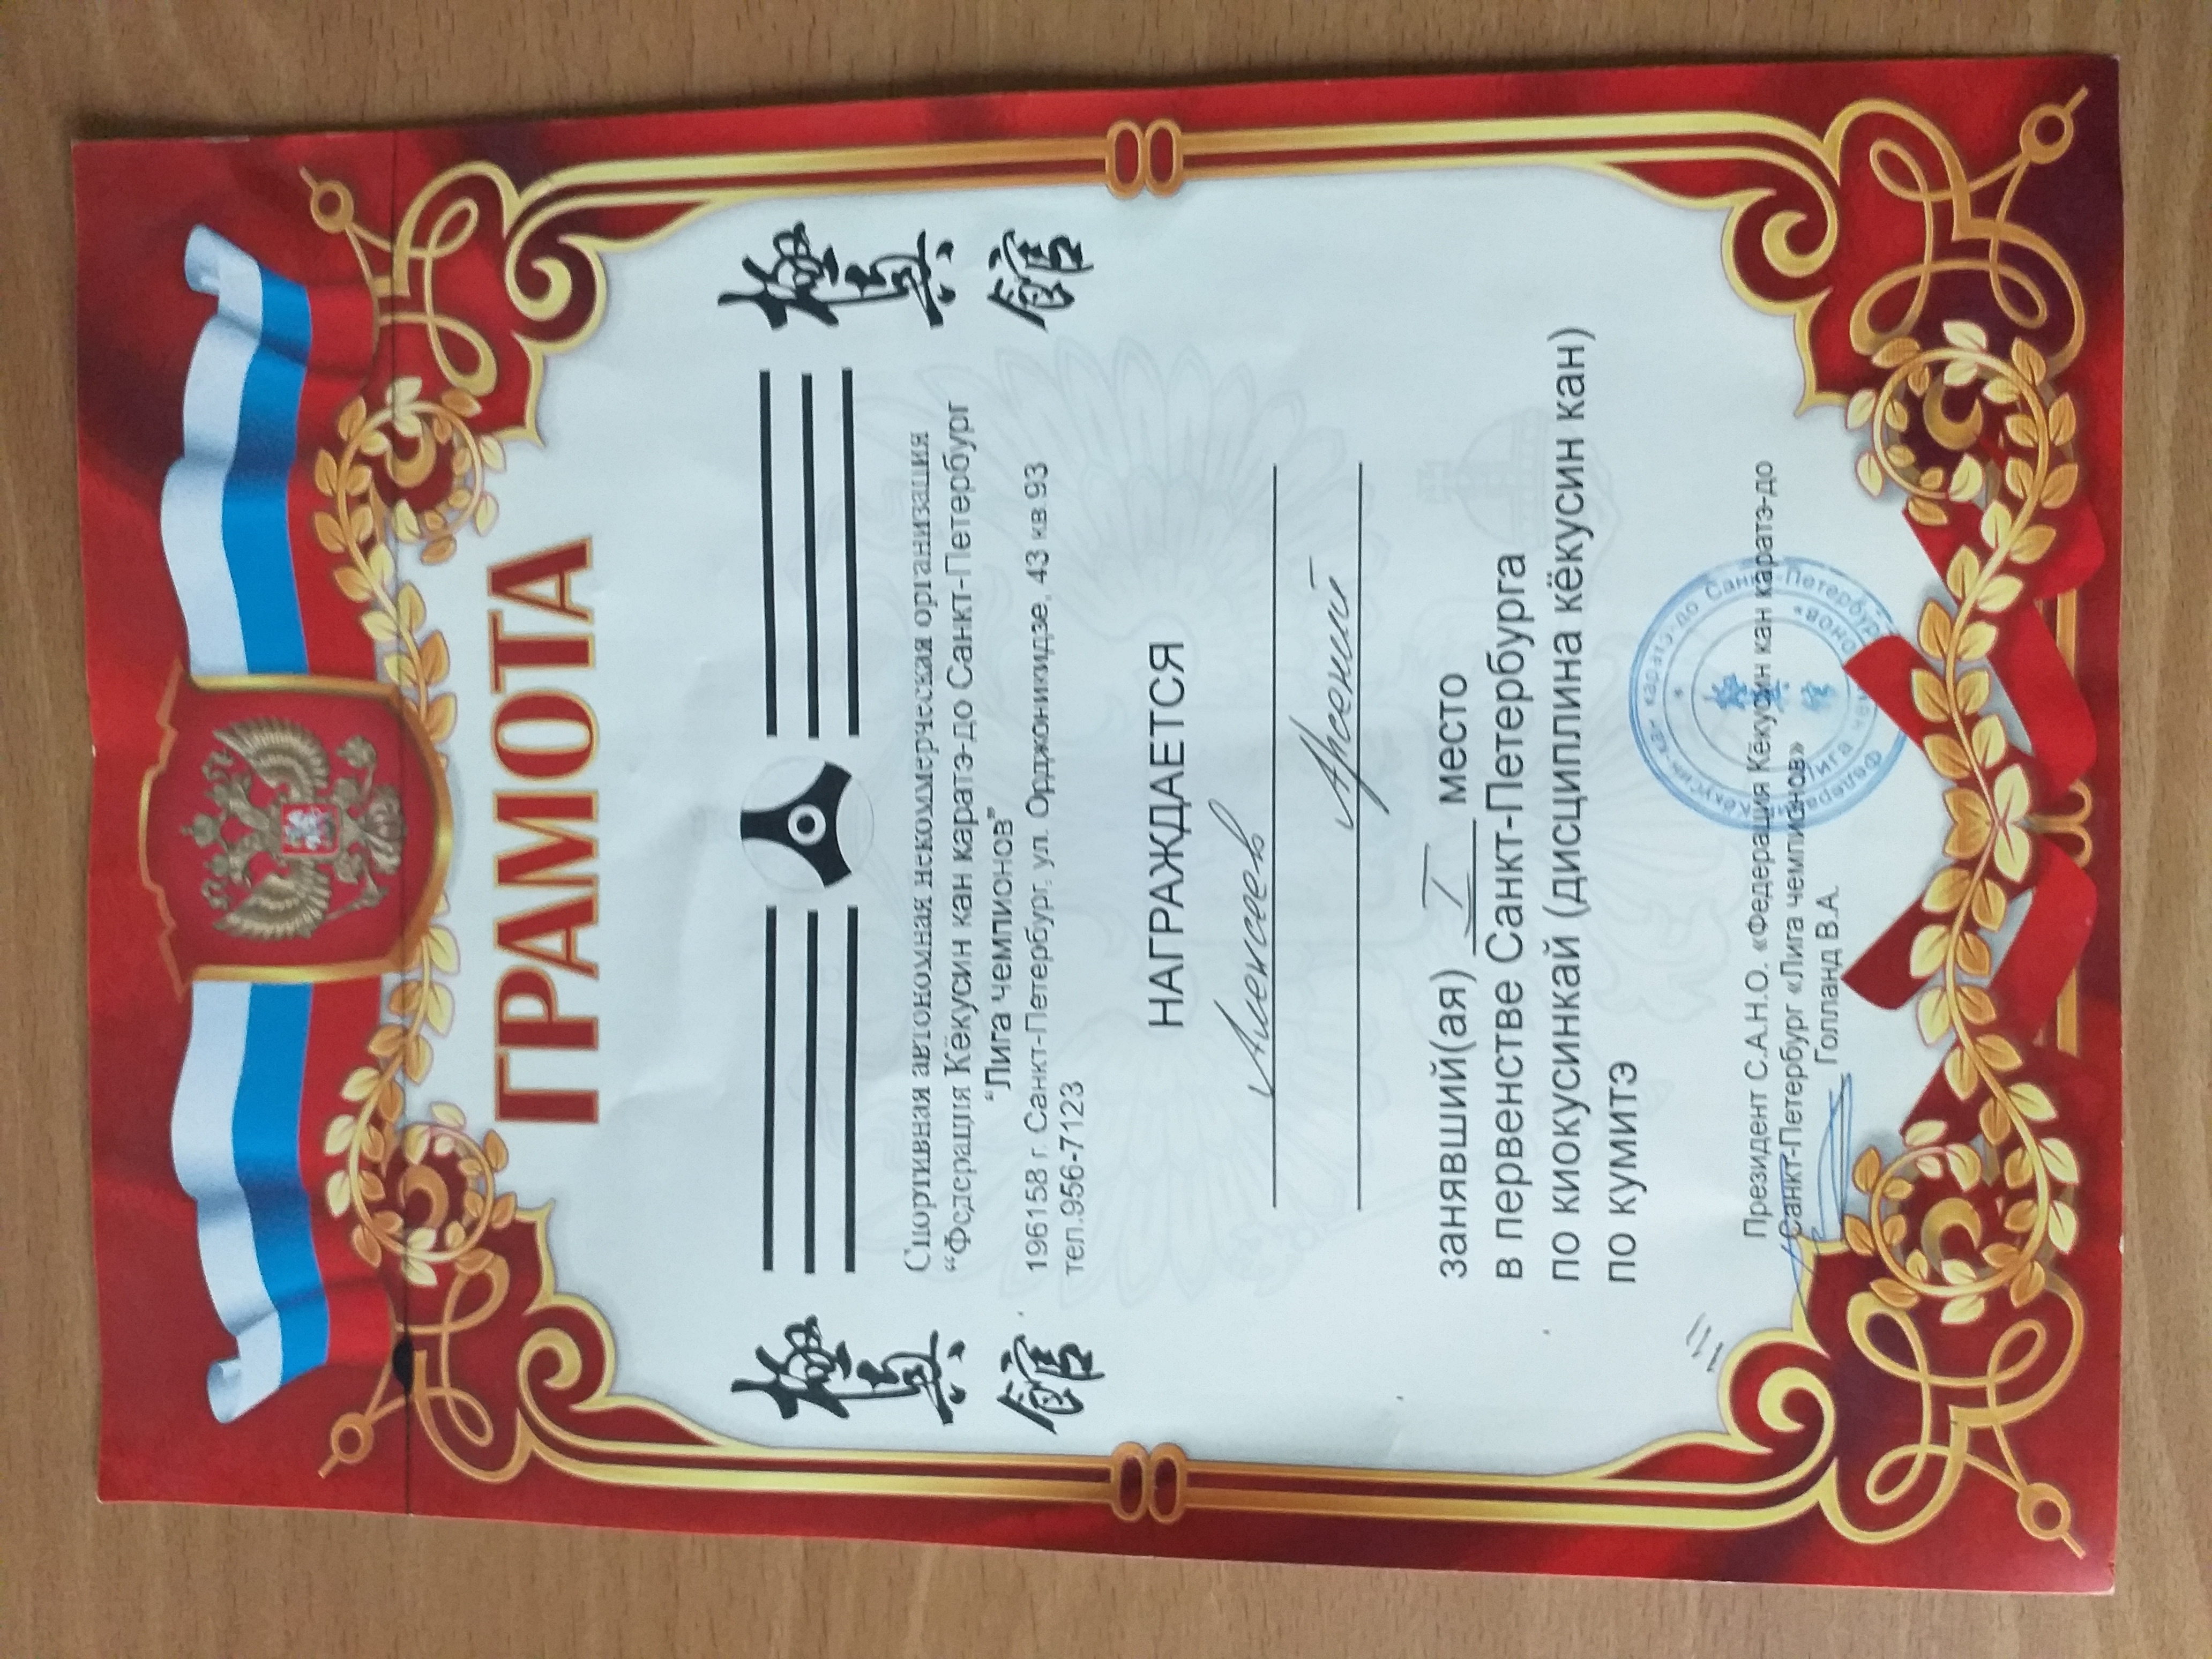 ГРАМОТА
極真館
極真館
Спортивная автономная некоммерческая организация
“Федерация Кёкусин кан каратэ-до Санкт-Петербург
“Лига чемпионов”
196158 г. Санкт-Петербург, ул. Орджоникидзе, 43 кв.93
тел.956-7123
НАГРАЖДАЕТСЯ
Алексеев
Арсений
занявший(ая) I место
в первенстве Санкт-Петербурга
по киокусинкай (дисциплина кёкусин кан)
по кумитэ
Президент С.А.Н.О. «Федерация Кёкусин кан каратэ-до
Санкт-Петербург «Лига чемпионов»
Голланд В.А.
Федерация Кёкусин-кан каратэ-до Санкт-Петербург
«Лига чемпионов»
極真館